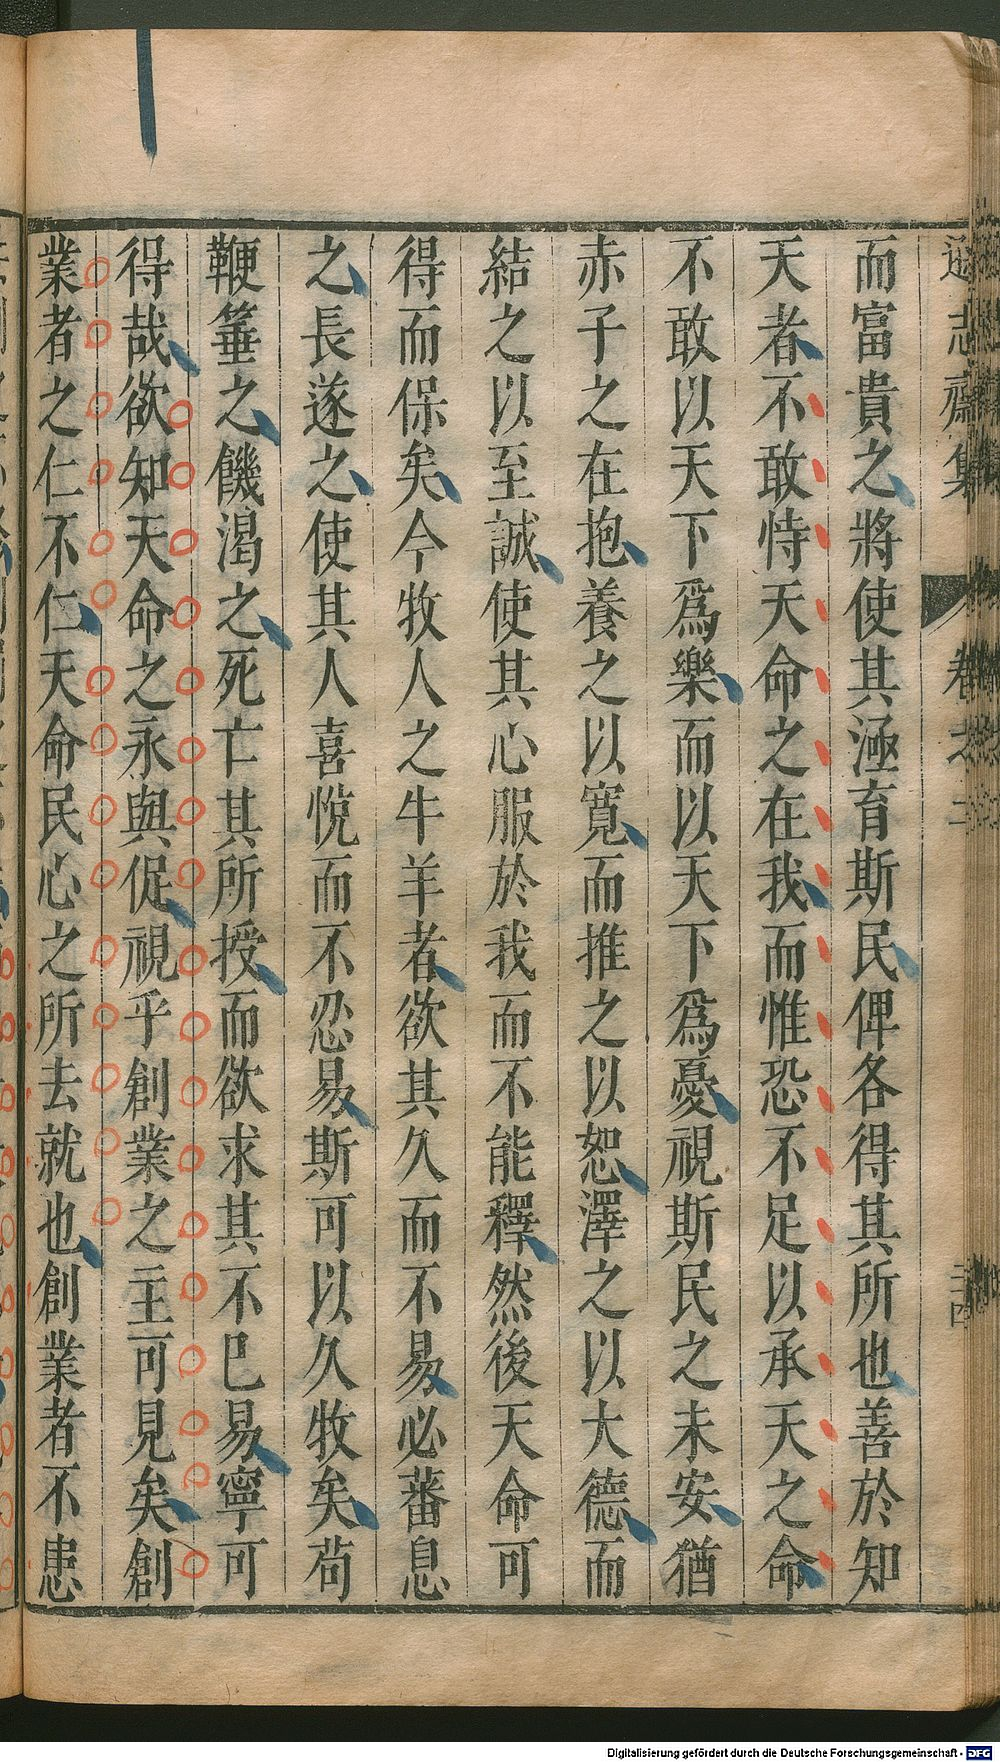 遜志齋集 卷之二
而富貴之將使其涵育斯民俾各得其所也善於知
天者不敢恃天命之在我而惟恐不足以承天之命
不敢以天下爲樂而以天下爲憂視斯民之未安猶
赤子之在抱養之以寛而推之以恕澤之以大德而
結之以至誠使其心服於我而不能釋然後天命可
得而保矣今牧人之牛羊者欲其久而不易必蕃息
之長遂之使其人喜悅而不忍易斯可以久牧矣苟
鞭箠之饑渴之死亡其所授而欲求其不巳易寧可
得哉欲知天命之永與促視乎創業之主可見矣創
業者之仁不仁天命民心之所去就也創業者不患
Digitalisierung gefördert durch die Deutsche Forschungsgemeinschaft - DFG